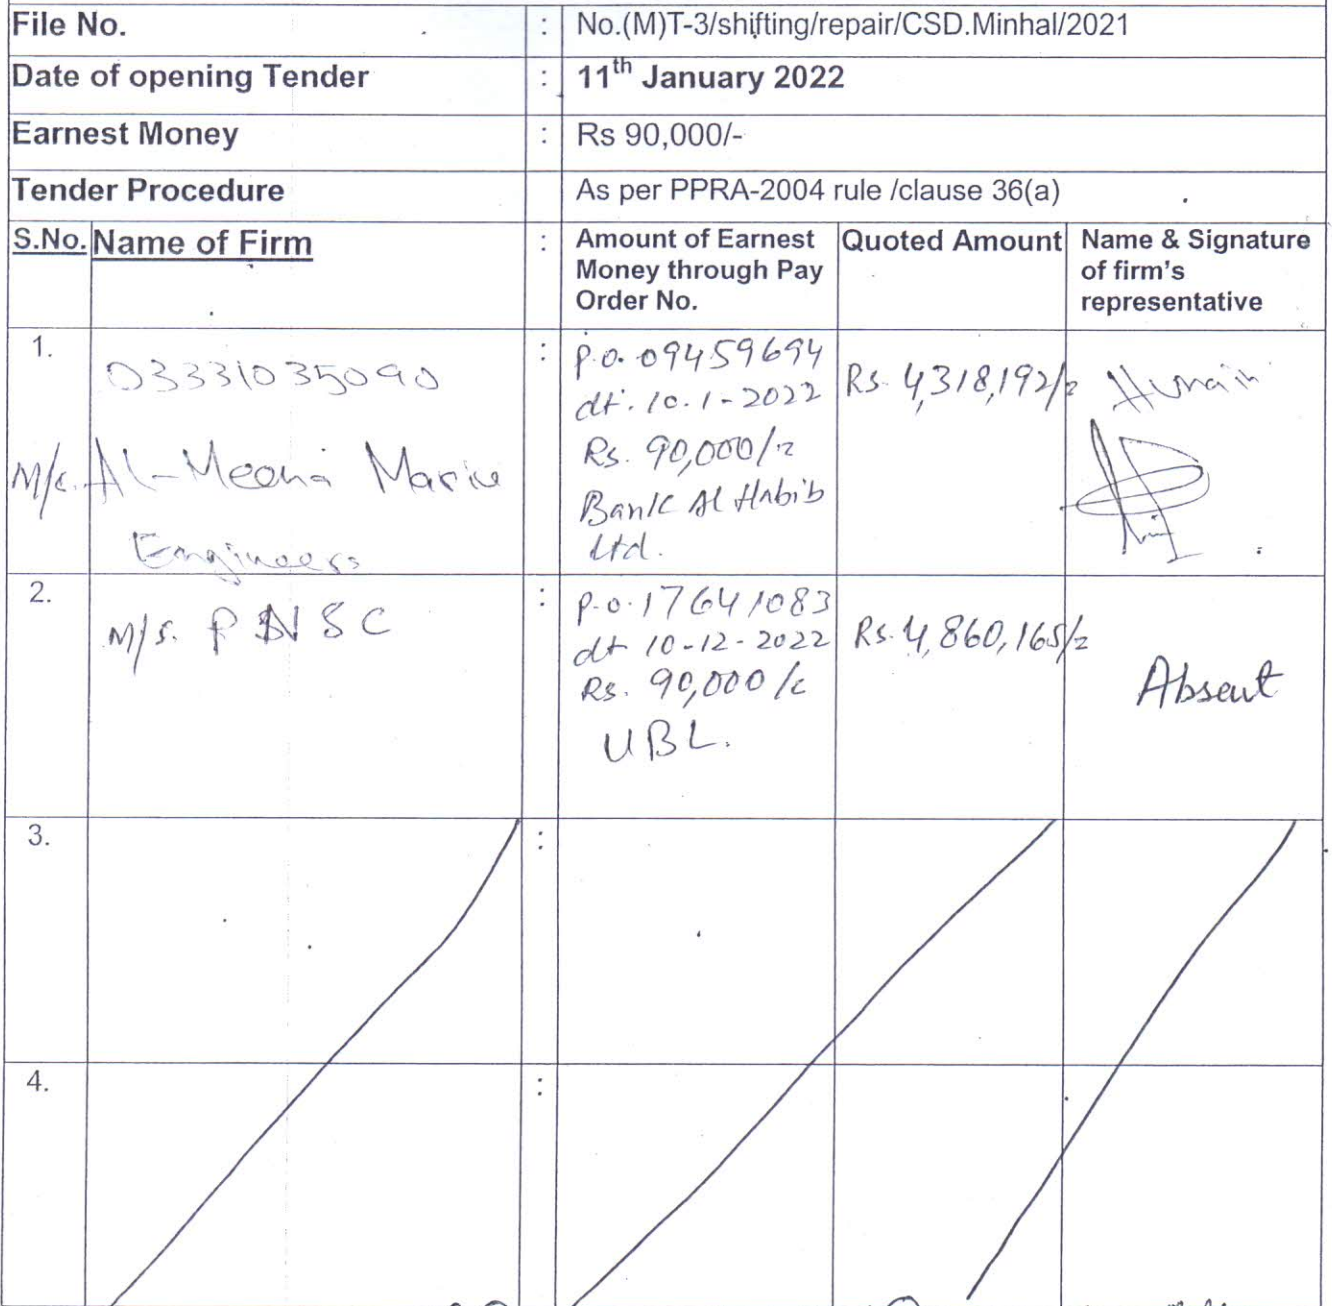 File No. : No.(M)T-3/shifting/repair/CSD.Minhal/2021
Date of opening Tender : 11th January 2022
Earnest Money : Rs 90,000/-
Tender Procedure As per PPRA-2004 rule /clause 36(a)
S.No. Name of Firm : Amount of Earnest Money through Pay Order No. Quoted Amount Name & Signature of firm's representative
1. :
03331035090
M/s. Al-Meena Marine
Engineers
P.o. 09459694
dt. 10.1-2022
Rs. 90,000/=
Bank Al Habib
Ltd.
Rs. 4,318,192/=
Hunain
2. :
M/s. PNSC
P.o. 17641083
dt 10-12-2022
Rs. 90,000/=
UBL.
Rs. 4,860,165/=
Absent
3. :
4. :